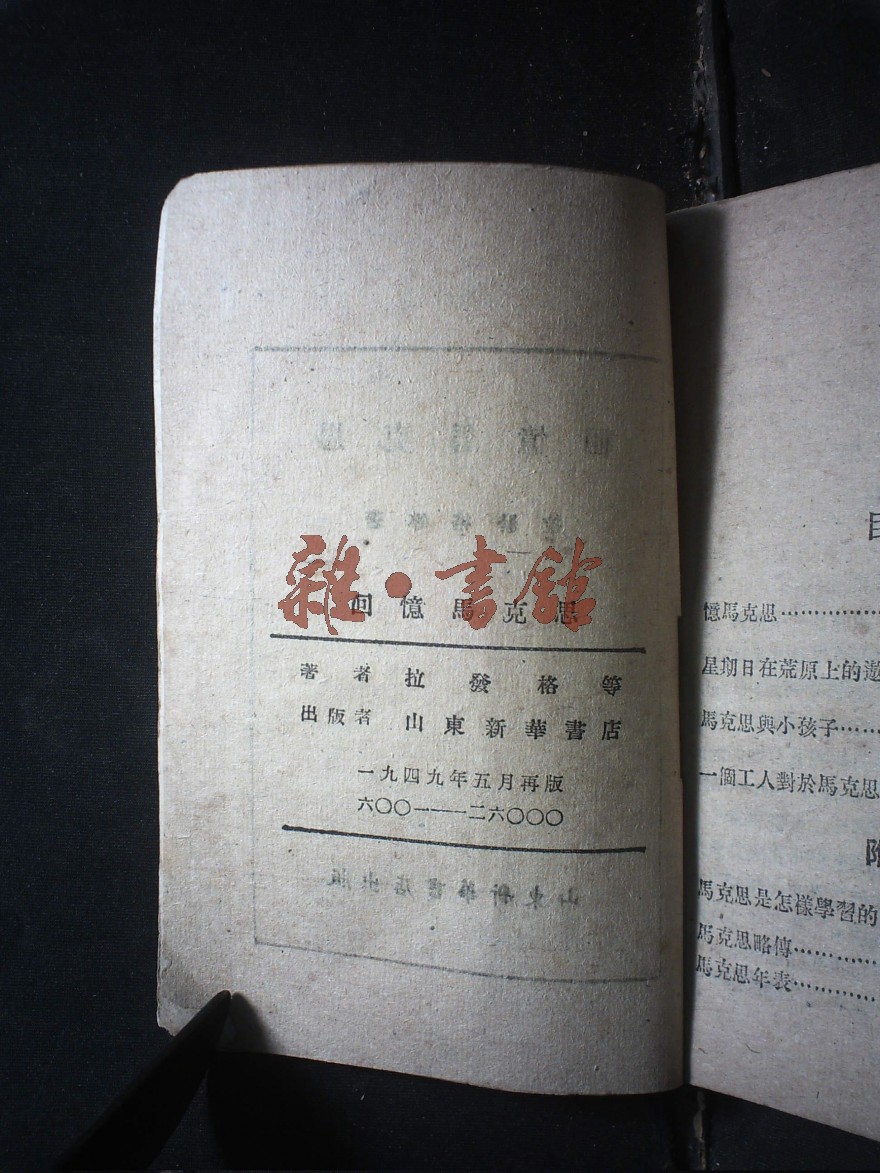 雜·書館
回憶馬克思
著者 拉發格等
出版者 山東新華書店
一九四九年五月再版
六〇〇一——二六〇〇〇
山東新華書店出版
回憶馬克思
拉發格等著
目
憶馬克思……………
星期日在荒原上的遊
馬克思與小孩子……
一個工人對於馬克思
附
馬克思是怎樣學習的
馬克思略傳…………
馬克思年表…………